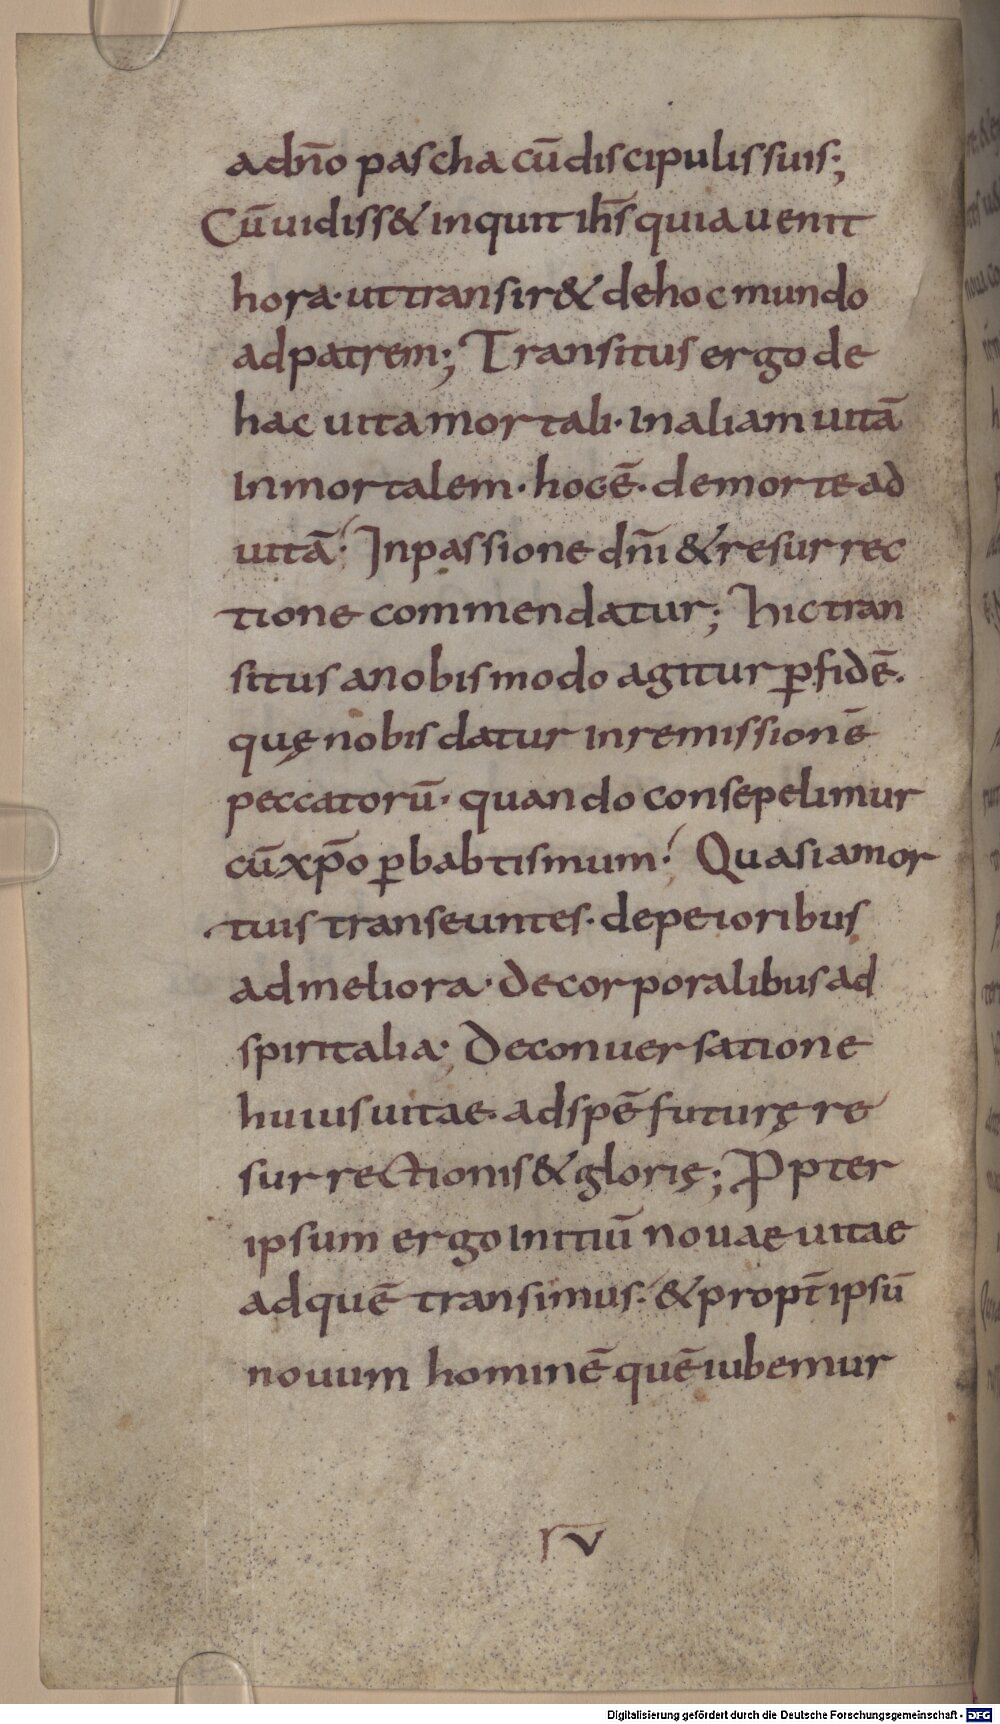 a dn̄o pascha cū discipulis suis;
Cū uidiss& inquit ih̄s quia uenit
hora· ut transir& de hoc mundo
ad patrem; Transitus ergo de
hac uita mortali· in aliam uitā
inmortalem· hoc ē· de morte ad
uitā· In passione dn̄i & resurrec
tione commendatur; hic tran
situs a nobis modo agitur ꝑ fidē·
quę nobis datur in remissionē
peccatorū· quando consepelimur
cū xp̄o ꝑ babtismum· Quasi a mor
tuis transeuntes· de peioribus
ad meliora· de corporalibus ad
spiritalia· De conuersatione
huius uitae· ad spē futurę re
surrectionis & glorię; Ꝓpter
ipsum ergo initiū nouae uitae
ad quē transimus· & propt̄ ipsū
nouum hominē quē iubemur
IV
Digitalisierung gefördert durch die Deutsche Forschungsgemeinschaft - DFG